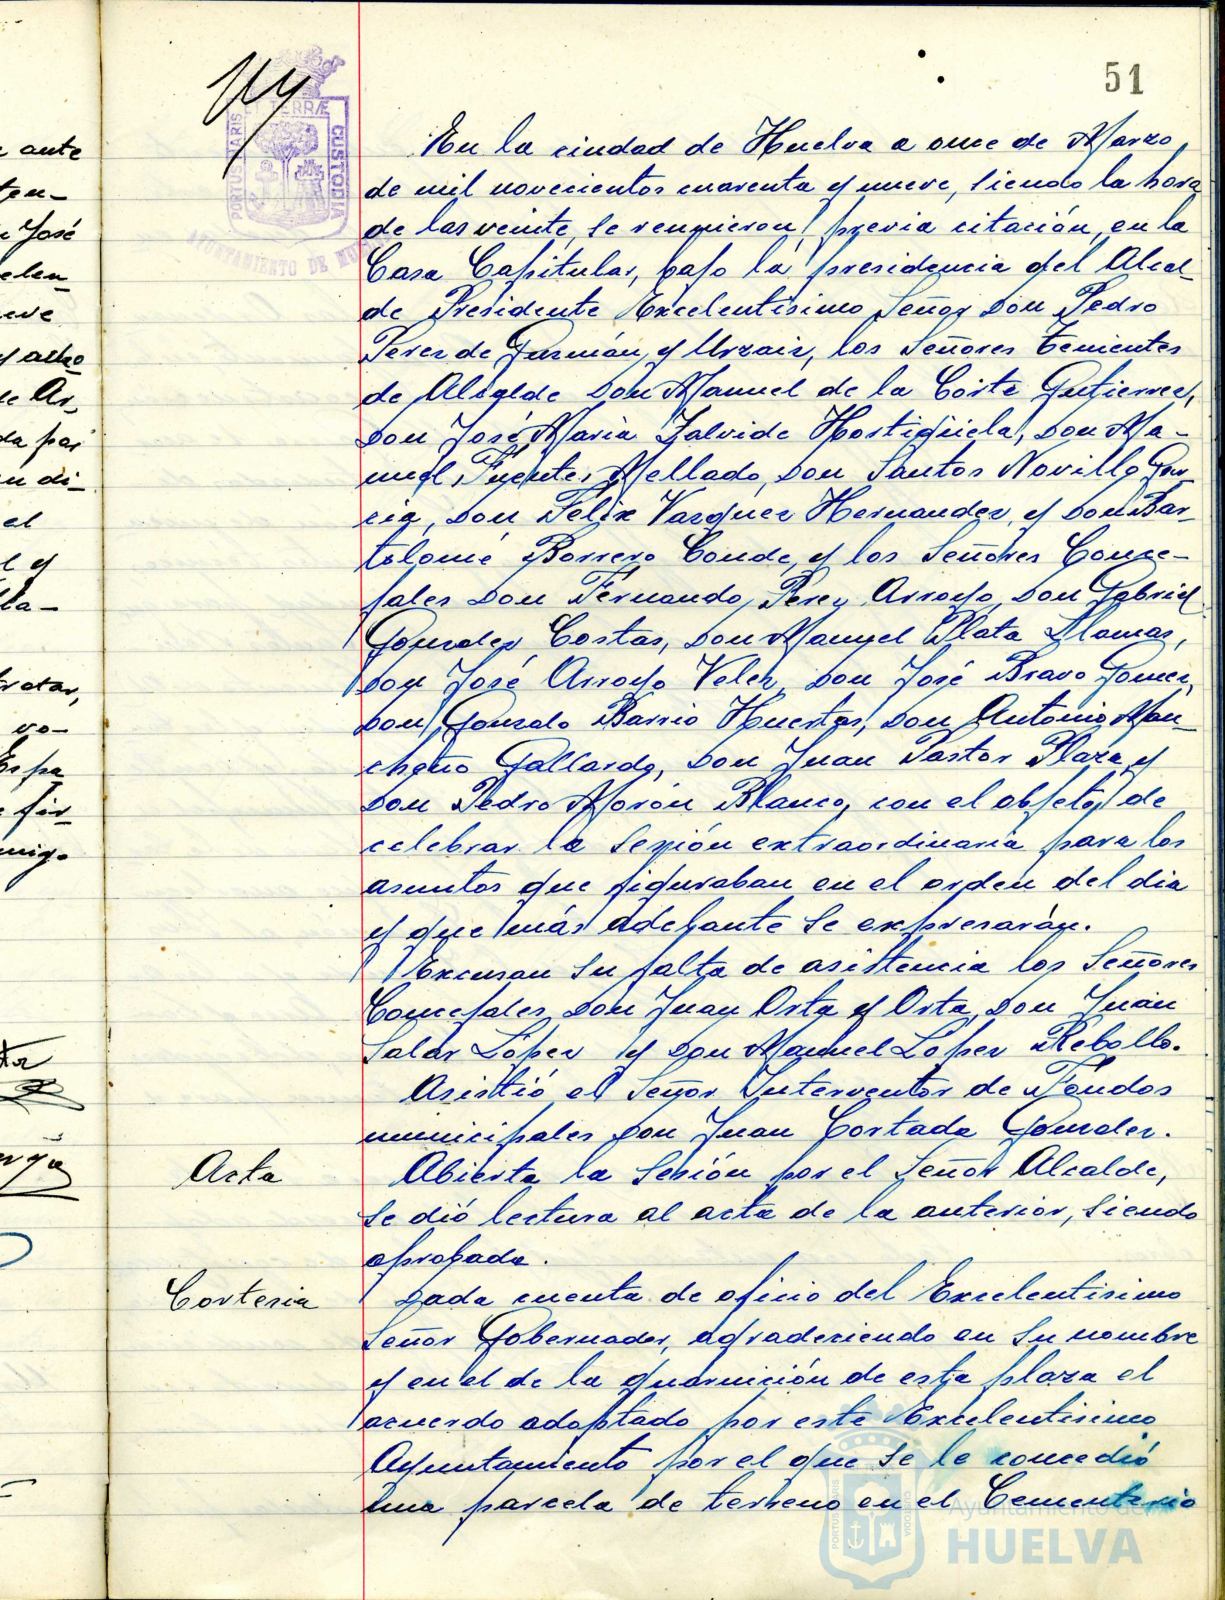 51
PORTUS MARIS ET TERRÆ CUSTODIA
AYUNTAMIENTO DE
En la ciudad de Huelva a once de Marzo
de mil novecientos cuarenta y nueve, siendo la hora
de las veinte, se reunieron, previa citación, en la
Casa Capitular, bajo la presidencia del Alcal-
de Presidente Excelentisimo Señor Don Pedro
Perez de Guzmán y Urzaiz, los Señores Tenientes
de Alcalde Don Manuel de la Corte Gutierrez,
Don José Maria Zalvide Hortigüela, Don Ma-
nuel Fuentes Mellado, Don Santos Novillo Gar
cia, Don Felix Vazquez Hernandez, y Don Bar-
tolomé Borrero Conde, y los Señores Conce-
jales Don Fernando Perez Arroyo, Don Gabriel
Gonzalez Costas, Don Manuel Plata Llamas,
Don José Arroyo Velez, Don José Bravo Gomez,
Don Gonzalo Barrio Huertas, Don Antonio Man-
cheño Gallardo, Don Juan Pastor Plaza y
Don Pedro Morón Blanco, con el objeto de
celebrar la Sesión extraordinaria para los
asuntos que figuraban en el orden del dia
y que más adelante se expresarán.
Excusan su falta de asistencia los Señores
Concejales Don Juan Orta y Orta, Don Juan
Salar López y Don Manuel López Rebollo.
Asistió el Señor Interventor de Fondos
municipales Don Juan Cortada Gonzalez.
Acta
Abierta la Sesión por el Señor Alcalde,
se dió lectura al acta de la anterior, siendo
aprobada.
Cortesia
Dada cuenta de oficio del Excelentisimo
Señor Gobernador, agradeciendo en su nombre
y en el de la guarnición de esta plaza el
acuerdo adoptado por este Excelentisimo
Ayuntamiento por el que se le concedió
una parcela de terreno en el Cementerio
Ayuntamiento de
HUELVA
e ante
José
eve
de Ar-
di-
el
y
va-